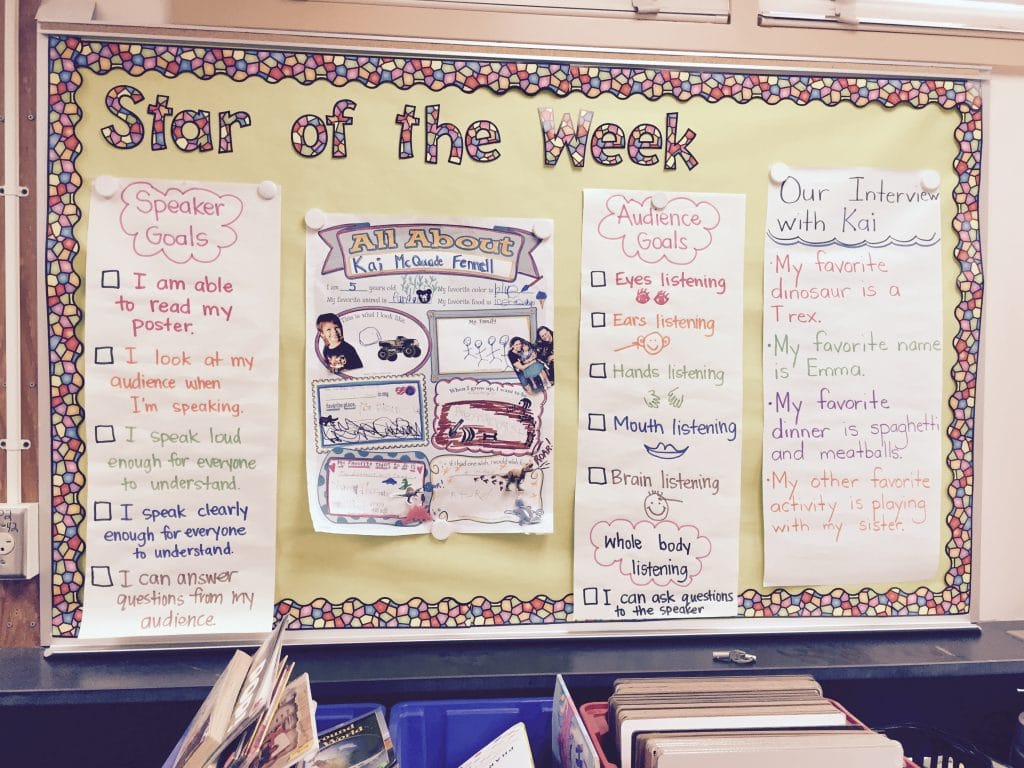 Star of the Week
Speaker
Goals
I am able
to read my
poster.
I look at my
audience when
I'm speaking.
I speak loud
enough for everyone
to understand.
I speak clearly
enough for everyone
to understand.
I can answer
questions from my
audience.
All About
Kai McQuade Fennell
I am 5 years old. My favorite color is
My favorite animal is My favorite food is
This is what I look like.
My Family
favorite place.
When I grow up, I want to be
If I had one wish, I would wish
ROAR!
Audience
Goals
Eyes listening
Ears listening
Hands listening
Mouth listening
Brain listening
whole body
listening
I can ask questions
to the speaker
Our Interview
with Kai
·My favorite
dinosaur is a
T rex.
·My favorite name
is Emma.
·My favorite
dinner is spaghetti
and meatballs.
·My other favorite
activity is playing
with my sister.